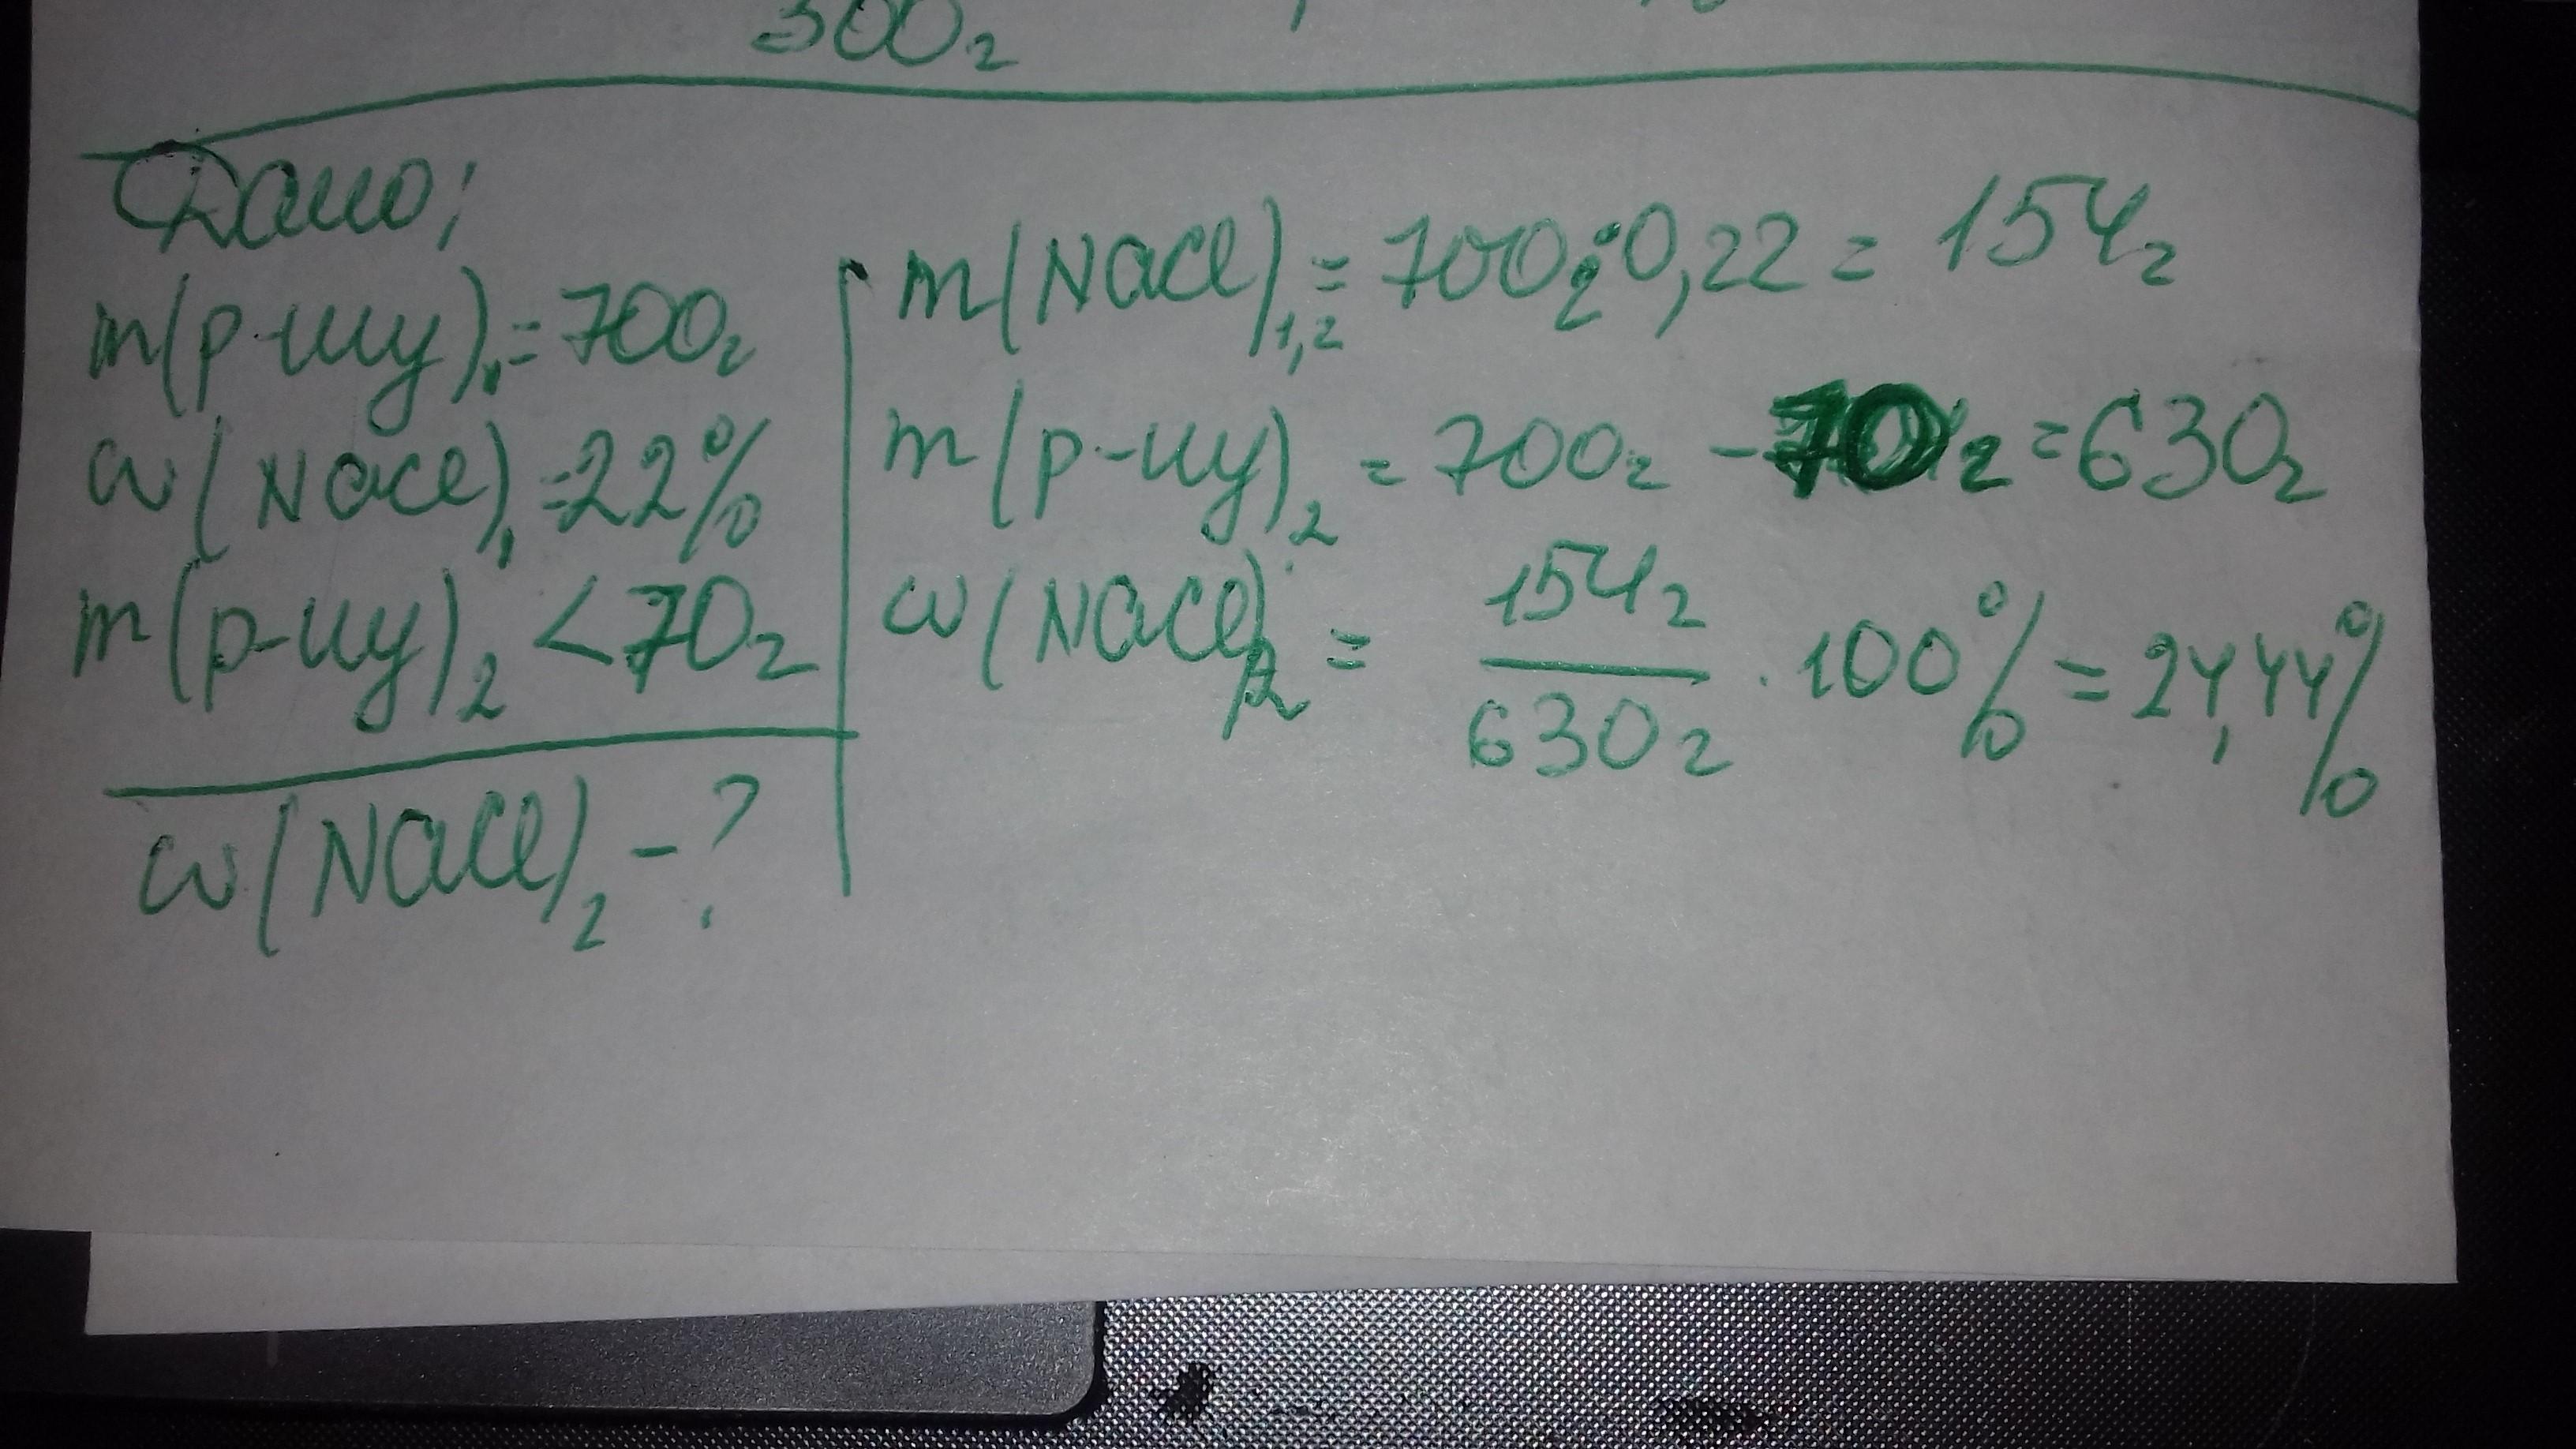 300г
Дано:
m(р-ну)₁ = 700г
w(NaCl)₁ = 22%
m(р-ну)₂ < 70г
w(NaCl)₂ - ?
m(NaCl)₁,₂ = 700г·0,22 = 154г
m(р-ну)₂ = 700г - 70г = 630г
w(NaCl)₂ = 154г / 630г · 100% = 24,44%